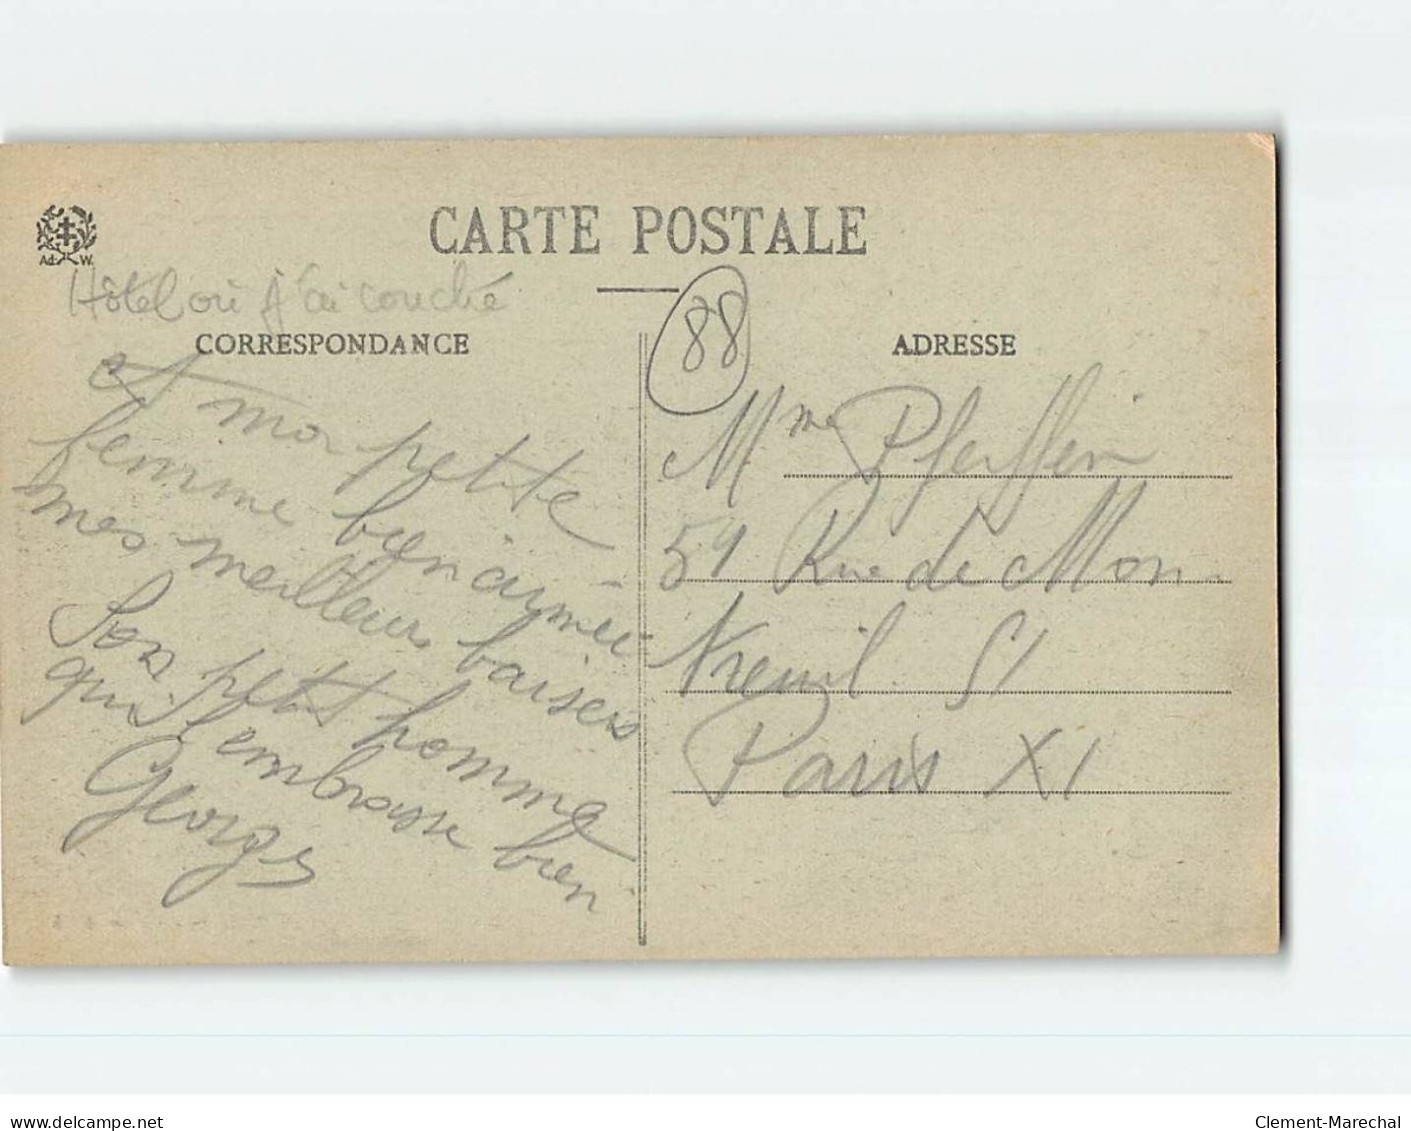 CARTE POSTALE
Ad. W.
Hôtel où j'ai couché
88
CORRESPONDANCE
A ma petite
femme bien aimée
mes meilleurs baisers
Son petit homme
qui l'embrasse bien
Georges
ADRESSE
Mme
51 Rue de Mon
treuil 51
Paris XI
www.delcampe.net
Clement-Marechal